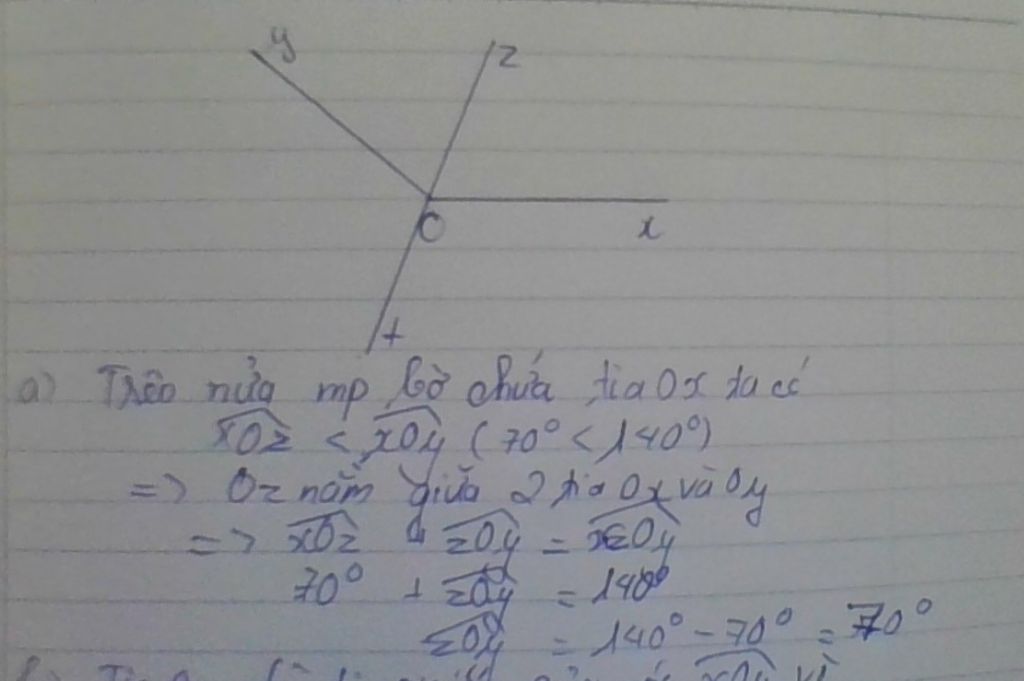 y
z
O
x
t
a) Trên nửa mp bờ chứa tia Ox ta có
xOz < xOy (70° < 140°)
=> Oz nằm giữa 2 tia Ox và Oy
=> xOz + zOy = xOy
70° + zOy = 140°
zOy = 140° - 70° = 70°
xOy vì